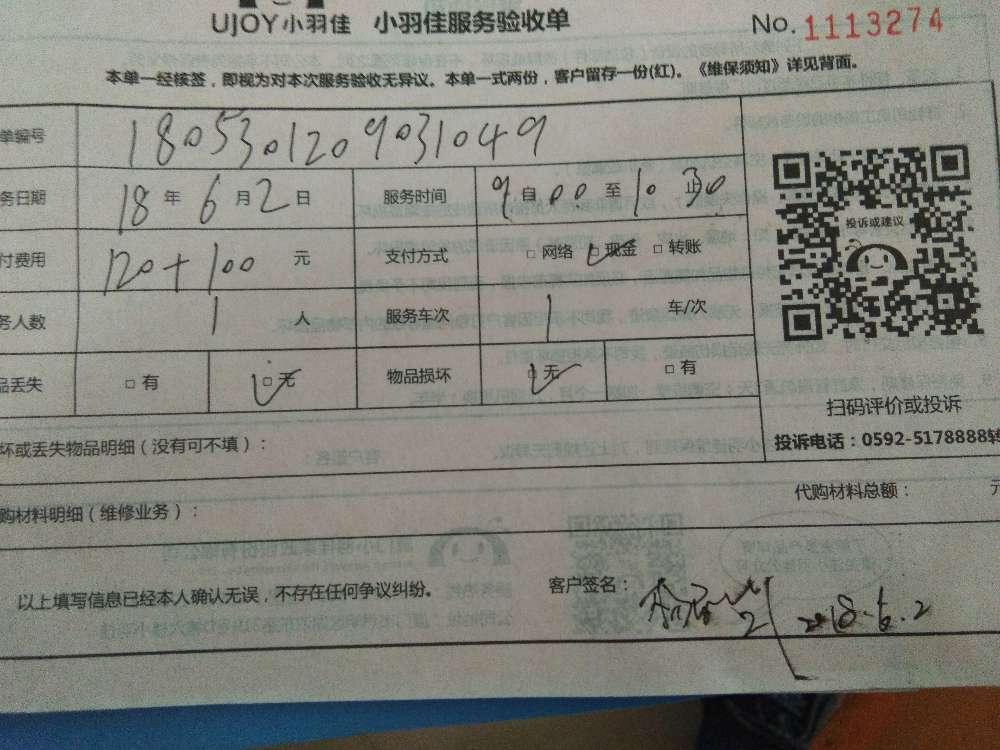 UJOY小羽佳 小羽佳服务验收单 No.1113274
本单一经接签，即视为对本次服务验收无异议。本单一式两份，客户留存一份(红)。《维保须知》详见背面。
单编号 1805301209031049
务日期 18 年 6 月 2 日 服务时间 9 自 00 至 10 止 30
付费用 120+100 元 支付方式 □ 网络 □ 现金 □ 转账
务人数 1 人 服务车次 1 车/次
品丢失 □ 有 □ 无 物品损坏 □ 无 □ 有
投诉或建议
扫码评价或投诉
投诉电话：0592-5178888转
坏或丢失物品明细（没有可不填）：
代购材料总额： 元
购材料明细（维修业务）：
以上填写信息已经本人确认无误，不存在任何争议纠纷。 客户签名： 2018.6.2